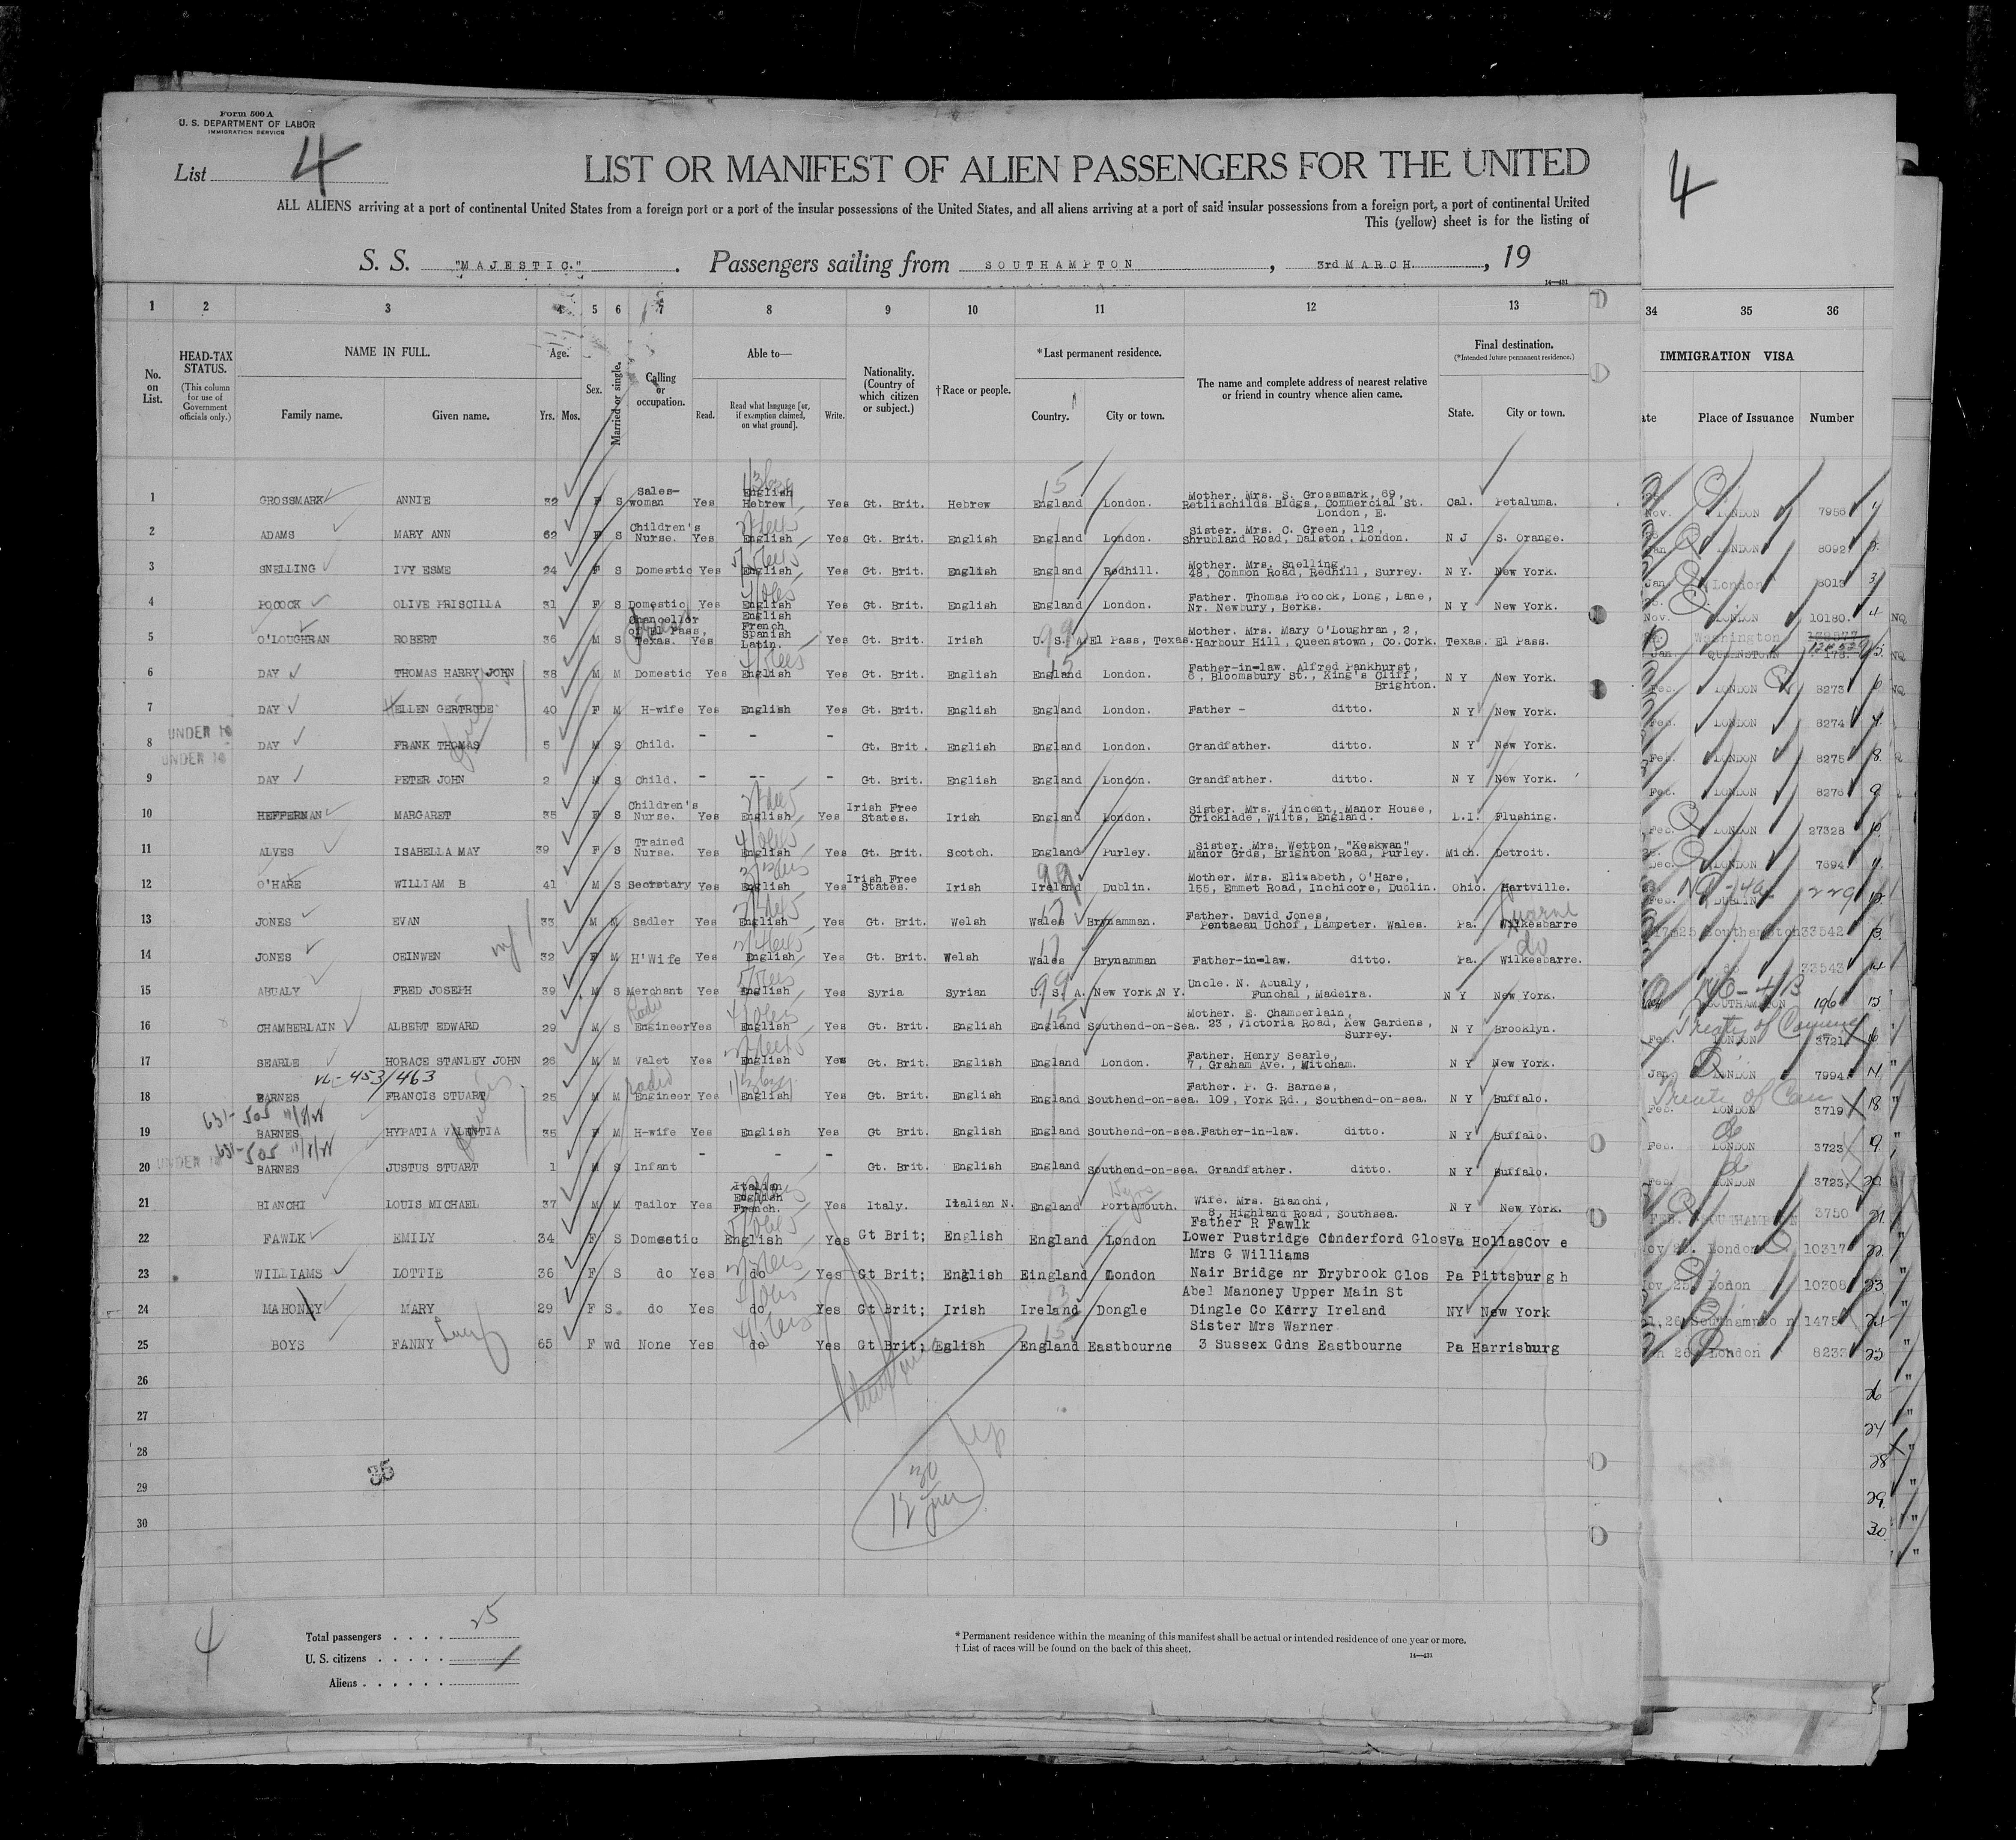 Form 500 A
U. S. DEPARTMENT OF LABOR
IMMIGRATION SERVICE
List 4
LIST OR MANIFEST OF ALIEN PASSENGERS FOR THE UNITED
ALL ALIENS arriving at a port of continental United States from a foreign port or a port of the insular possessions of the United States, and all aliens arriving at a port of said insular possessions from a foreign port, a port of continental United
This (yellow) sheet is for the listing of
S. S. "MAJESTIC." Passengers sailing from SOUTHAMPTON, 3rd MARCH, 19
14—431
1 2 3 4 5 6 7 8 9 10 11 12 13
No. on List.
HEAD-TAX STATUS.
(This column for use of Government officials only.)
NAME IN FULL.
Family name. Given name.
Age.
Yrs. Mos.
Sex.
Married or single.
Calling or occupation.
Able to—
Read. Read what language [or, if exemption claimed, on what ground]. Write.
Nationality. (Country of which citizen or subject.)
†Race or people.
*Last permanent residence.
Country. City or town.
The name and complete address of nearest relative or friend in country whence alien came.
Final destination.
(*Intended future permanent residence.)
State. City or town.
1 GROSSMARK ANNIE 32 F S Sales-woman Yes English Hebrew Yes Gt. Brit. Hebrew England London. Mother. Mrs. S. Grossmark, 69, Retlischilds Bldgs, Commercial St. London, E. Cal. Petaluma.
2 ADAMS MARY ANN 62 F S Children's Nurse. Yes English Yes Gt. Brit. English England London. Sister. Mrs. C. Green, 112, Shrubland Road, Dalston, London. N J S. Orange.
3 SNELLING IVY ESME 24 F S Domestic Yes English Yes Gt. Brit. English England Redhill. Mother. Mrs. Snelling, 48, Common Road, Redhill, Surrey. N Y. New York.
4 POCOCK OLIVE PRISCILLA 31 F S Domestic Yes English Yes Gt. Brit. English England London. Father. Thomas Pocock, Long, Lane, Nr. Newbury, Berks. N Y New York.
5 O'LOUGHRAN ROBERT 36 M S Chancellor of El Pass, Texas. Yes English French Spanish Latin. Yes Gt. Brit. Irish U. S. A. El Pass, Texas. Mother. Mrs. Mary O'Loughran, 2, Harbour Hill, Queenstown, Co. Cork. Texas. El Pass.
6 DAY THOMAS HARRY JOHN 38 M M Domestic Yes English Yes Gt. Brit. English England London. Father-in-law. Alfred Pankhurst, 6, Bloomsbury St., King's Cliff, Brighton. N Y New York.
7 DAY HELLEN GERTRUDE 40 F M H-wife Yes English Yes Gt. Brit. English England London. Father - ditto. N Y New York.
UNDER 16
8 DAY FRANK THOMAS 5 M S Child. - - - Gt. Brit. English England London. Grandfather. ditto. N Y New York.
UNDER 16
9 DAY PETER JOHN 2 M S Child. - -- - Gt. Brit. English England London. Grandfather. ditto. N Y New York.
10 HEFFERNAN MARGARET 35 F S Children's Nurse. Yes English Yes Irish Free States. Irish England London. Sister. Mrs. Vincent, Manor House, Cricklade, Wilts, England. L.I. Flushing.
11 ALVES ISABELLA MAY 39 F S Trained Nurse. Yes English Yes Gt. Brit. Scotch. England Purley. Sister. Mrs. Wetton, "Keskwan" Manor Grds, Brighton Road, Purley. Mich. Detroit.
12 O'HARE WILLIAM B 41 M S Secretary Yes English Yes Irish Free States. Irish Ireland Dublin. Mother. Mrs. Elizabeth, O'Hare, 155, Emmet Road, Inchicore, Dublin. Ohio. Hartville.
13 JONES EVAN 33 M M Sadler Yes English Yes Gt. Brit. Welsh Wales Brynamman. Father. David Jones, Pentaeau Uchof, Lampeter. Wales. Pa. Wilkesbarre
14 JONES CEINWEN 32 F M H'Wife Yes English Yes Gt. Brit. Welsh Wales Brynamman Father-in-law. ditto. Pa. Wilkesbarre. do
15 ABUALY FRED JOSEPH 39 M S Merchant Yes English Yes Syria Syrian U. S. A. New York, N Y. Uncle. N. Abualy, Funchal, Madeira. N Y New York.
16 CHAMBERLAIN ALBERT EDWARD 29 M S Radio Engineer Yes English Yes Gt. Brit. English England Southend-on-sea. Mother. E. Chamberlain, 23, Victoria Road, Kew Gardens, Surrey. N Y Brooklyn.
17 SEARLE HORACE STANLEY JOHN 26 M M Valet Yes English Yes Gt. Brit. English England London. Father. Henry Searle, 7, Graham Ave., Mitcham. N Y New York.
VL-453/463
18 BARNES FRANCIS STUART 25 M M Radio Engineer Yes English Yes Gt. Brit. English England Southend-on-sea. Father. P. G. Barnes, 109, York Rd., Southend-on-sea. N Y Buffalo.
631-505 11/8/28
19 BARNES HYPATIA VALENTIA 35 F M H-wife Yes English Yes Gt Brit. English England Southend-on-sea. Father-in-law. ditto. N Y Buffalo.
631-505 11/8/28
UNDER 16
20 BARNES JUSTUS STUART 1 M S Infant - - - Gt. Brit. English England Southend-on-sea. Grandfather. ditto. N Y Buffalo.
21 BIANCHI LOUIS MICHAEL 37 M M Tailor Yes Italian English French. Yes Italy. Italian N. England Portsmouth. Wife. Mrs. Bianchi, 8, Highland Road, Southsea. N Y New York.
22 FAWLK EMILY 34 F S Domestic English Yes Gt Brit; English England London Father R Fawlk Lower Pustridge Cinderford Glos Va HollasCov e
23 WILLIAMS LOTTIE 36 F S do Yes do Yes Gt Brit; English Eingland London Mrs G Williams Nair Bridge nr Drybrook Glos Pa Pittsburg h
24 MAHONEY MARY 29 F S. do Yes do Yes Gt Brit; Irish Ireland Dongle Abel Manoney Upper Main St Dingle Co Kerry Ireland NY New York
25 BOYS FANNY Lucy 65 F wd None Yes do Yes Gt Brit; Eglish England Eastbourne Sister Mrs Warner 3 Sussex Gdns Eastbourne Pa Harrisburg
26
27
28
29
30
35
4
Total passengers . . . . 25
U. S. citizens . . . . .
Aliens . . . . . .
* Permanent residence within the meaning of this manifest shall be actual or intended residence of one year or more.
† List of races will be found on the back of this sheet.
14—431
4
34 35 36
IMMIGRATION VISA
ate Place of Issuance Number
Nov. LONDON 7956
Jan LONDON 8092
Jan. London 8013 3
Nov. LONDON 10180. 4 NQ
Washington
Jan. QUEENSTOWN 176. 5 NQ
Feb. LONDON 8273 6 NQ
Feb. LONDON 8274 7
Feb. LONDON 8275 8
Feb. LONDON 8276 9
Feb. LONDON 27328 10
Dec. LONDON 7694 11
Feb. DUBLIN 229 12
Southampton 33542 13
33543 14
SOUTHAMPTON 196 15
Treaty of Commerce
Feb. LONDON 3721 16
Jan. LONDON 7994 17
Treaty of Com
Feb. LONDON 3719 18
do
Feb. LONDON 3723 19
do
Feb. LONDON 3723 20
FEB. SOUTHAMPTON 3750 21
London 10317 22
London 10308 23
Southampto n 1475 24
London 8233 25
26
27
28
29
30